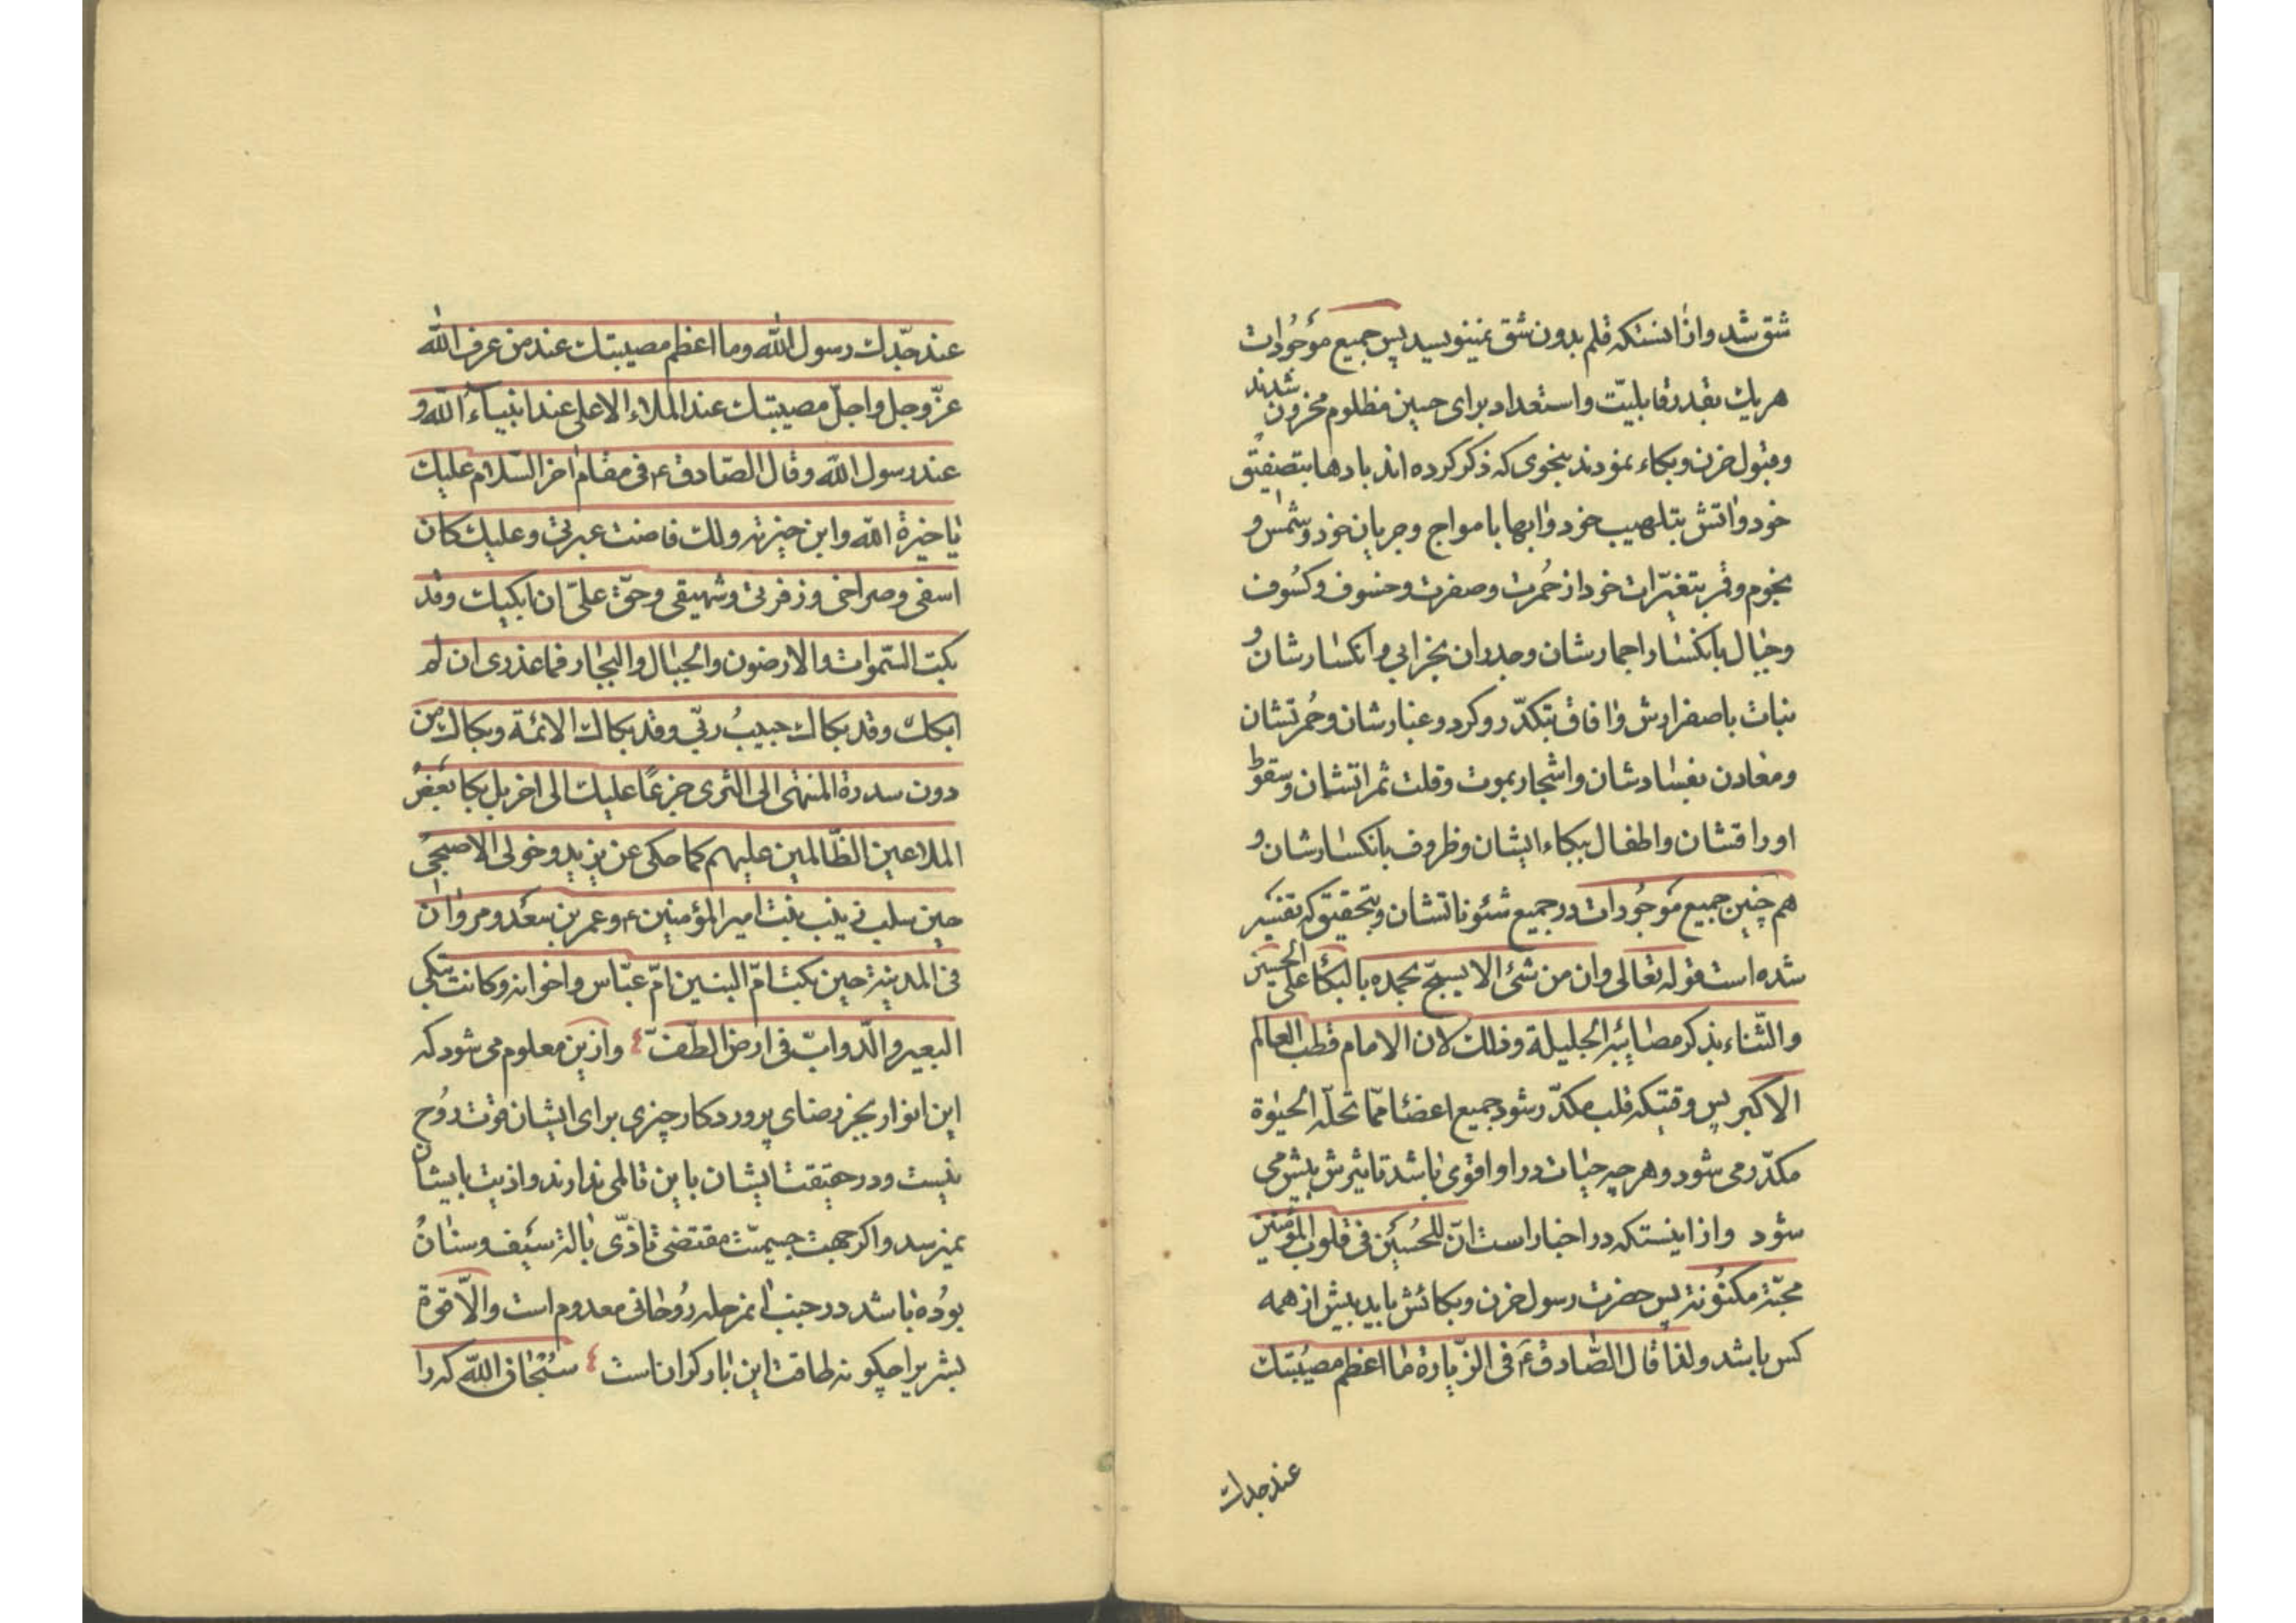 شق شد و از انستکه قلم بدون شق نمینویسد پس جمیع موجودات
هریك بقدر قابلیّت و استعداد برای حسین مظلوم محزون شدند
و قبول حزن و بکاء نمودند بنحوی که ذکر کرده اند بادها بتصفیق
خود و اتش بتلهیب خود و ابها بامواج و جریان خود و شمس و
نجوم و قمر بتغیّرات خود از حُمرت و صفرت و خسوف و کسُوف
و جبال بانکسار احجارشان و جدران بخرابی و انکسارشان و
نبات باصفرارش و افاق بتکدّر و کرد و غبارشان و حُمرتشان
و معادن بفسادشان و اشجار بموت و قلت ثمراتشان و سقوط
اوراقشان و اطفال ببکاء ایشان و ظروف بانکسارشان و
هم چنین جمیع موجودات در جمیع شئوناتشان و بتحقیق که تفسیر
شده است قوله تعالی و ان من شیء الا یسبّح بحمده بالبکاء علی الحسین
و الثّناء بذکر مصائبه الجلیلة و ذلك لان الامام قطب العالم
الاکبر پس وقتیکه قلب مکدّر شود جمیع اعضا ممّا تحلّه الحیوة
مکدّر می شود و هر چه حیات در او اقوی باشد تاثیرش بیش می
شود و از اینستکه در اخبار است انّ للحُسین فی قلوب المؤمنین
محبّة مکنونة پس حضرت رسول حزن و بکائش باید بیش از همه
کس باشد و لذا قال الصّادق ع فی الزّیارة ما اعظم مصیبتك
عند جدك
عند جدّك رسول الله و ما اعظم مصیبتك عند من عرف الله
عزّ و جل و اجلّ مصیبتك عند الملاء الاعلی عند انبیاء الله و
عند رسول الله و قال الصّادق ع فی مقام اخر السّلام علیك
یا خیرة الله و ابن خیرته و لك فاضت عبرتی و علیك کان
اسفی و صراخی و زفرتی و شهیقی و حقّ علیّ ان ابکیك و قد
بکت السّموات و الارضون و الجبال و البحار فما عذری ان لم
ابکك و قد بکاك حبیبُ ربّی و قد بکاك الائمة و بکاك من
دون سدرة المنتهی الی الثری جزعًا علیك الی اخر بل بکا بعض
الملاعین الظّالمین علیهم کما حکی عن یزید و خولی الاصبحی
حین سلب زینب بنت امیر المؤمنین ع و عمر بن سعد و مروان
فی المدینة حین بکت امّ البنین امّ عبّاس و اخوانه و کانت تبکی
البعیر و الدّوابّ فی ارض الطّفّ و از ین معلوم می شود که
این انوار بجز رضای پروردکار چیزی برای ایشان قوت روُح
نیست و در حقیقت ایشان باین قالمی ندارند و اذیت بایشان
نمیرسد و اکر جهت جسمیّت مقتضی تاذّی بالة سیف و سنان
بوُده باشد در جنب انمرحله روُحانی معدوم است و الّا قوة
بشر یرا چکونه طاقت این بار کران است سُبحان الله که را